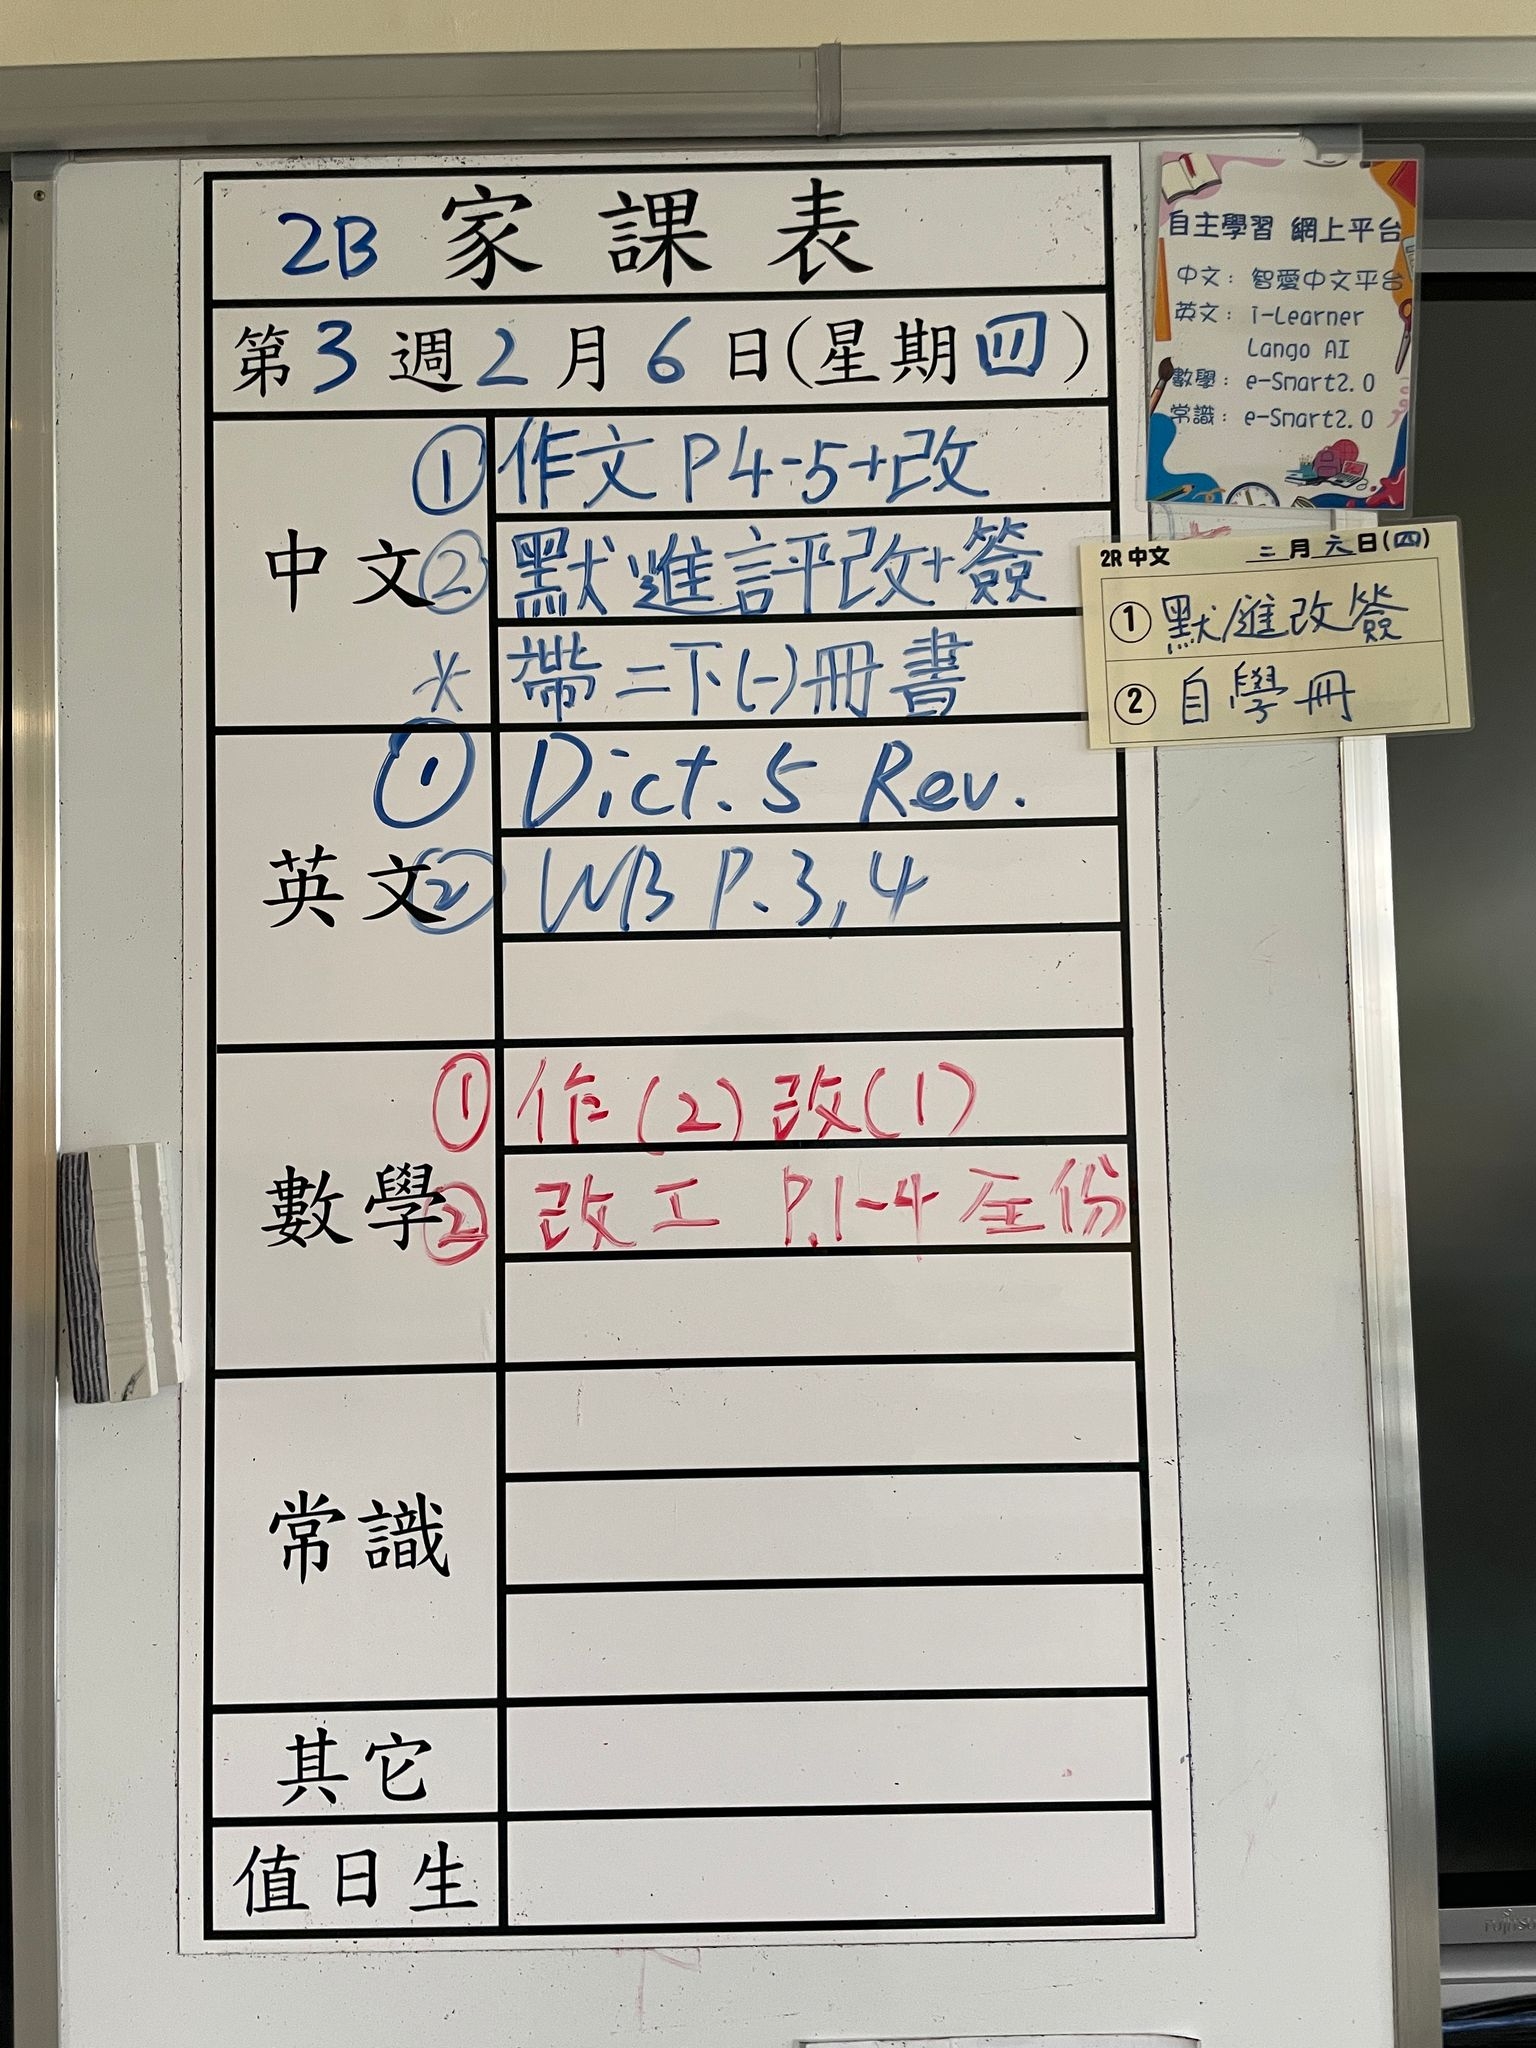 2B 家課表
第3週2月6日(星期四)
中文
① 作文 P4-5+改
② 默進評改+簽
* 帶二下(一)冊書
英文
① Dict. 5 Rev.
② WB P.3,4
數學
① 作(2)改(1)
② 改工 P.1-4 全份
常識
其它
值日生
自主學習 網上平台
中文: 智愛中文平台
英文: i-Learner
Lango AI
數學: e-Smart2.0
常識: e-Smart2.0
2R 中文 二月六日(四)
① 默進改簽
② 自學冊